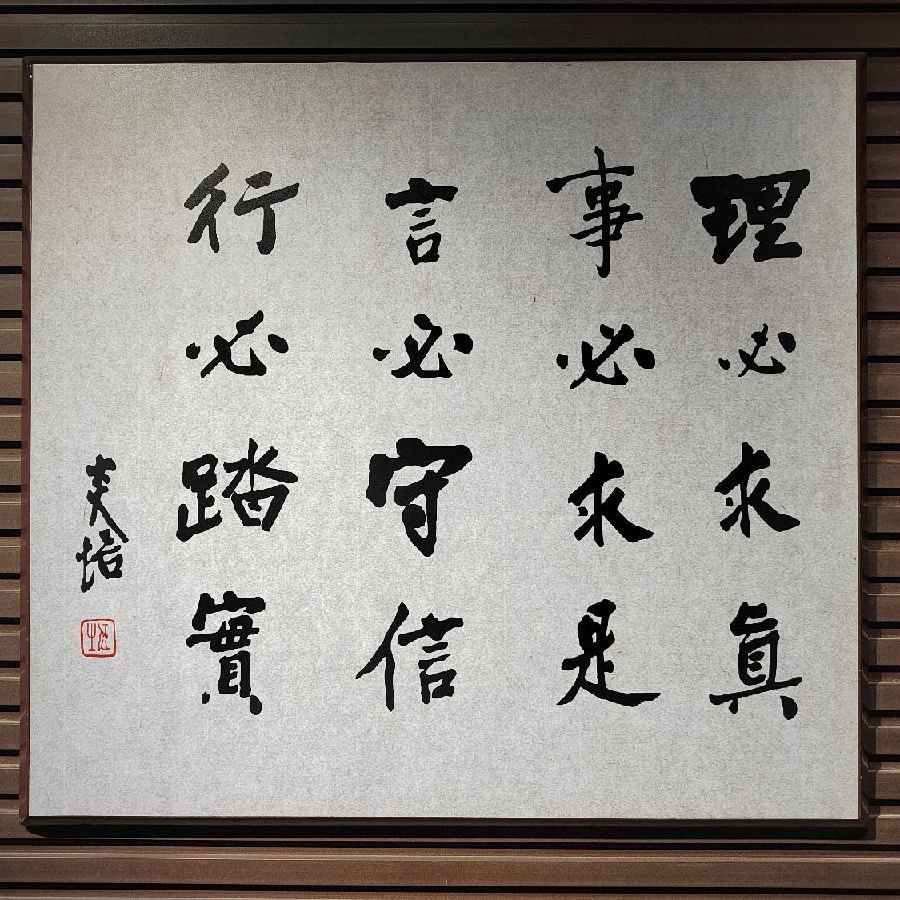 理必求眞
事必求是
言必守信
行必踏實